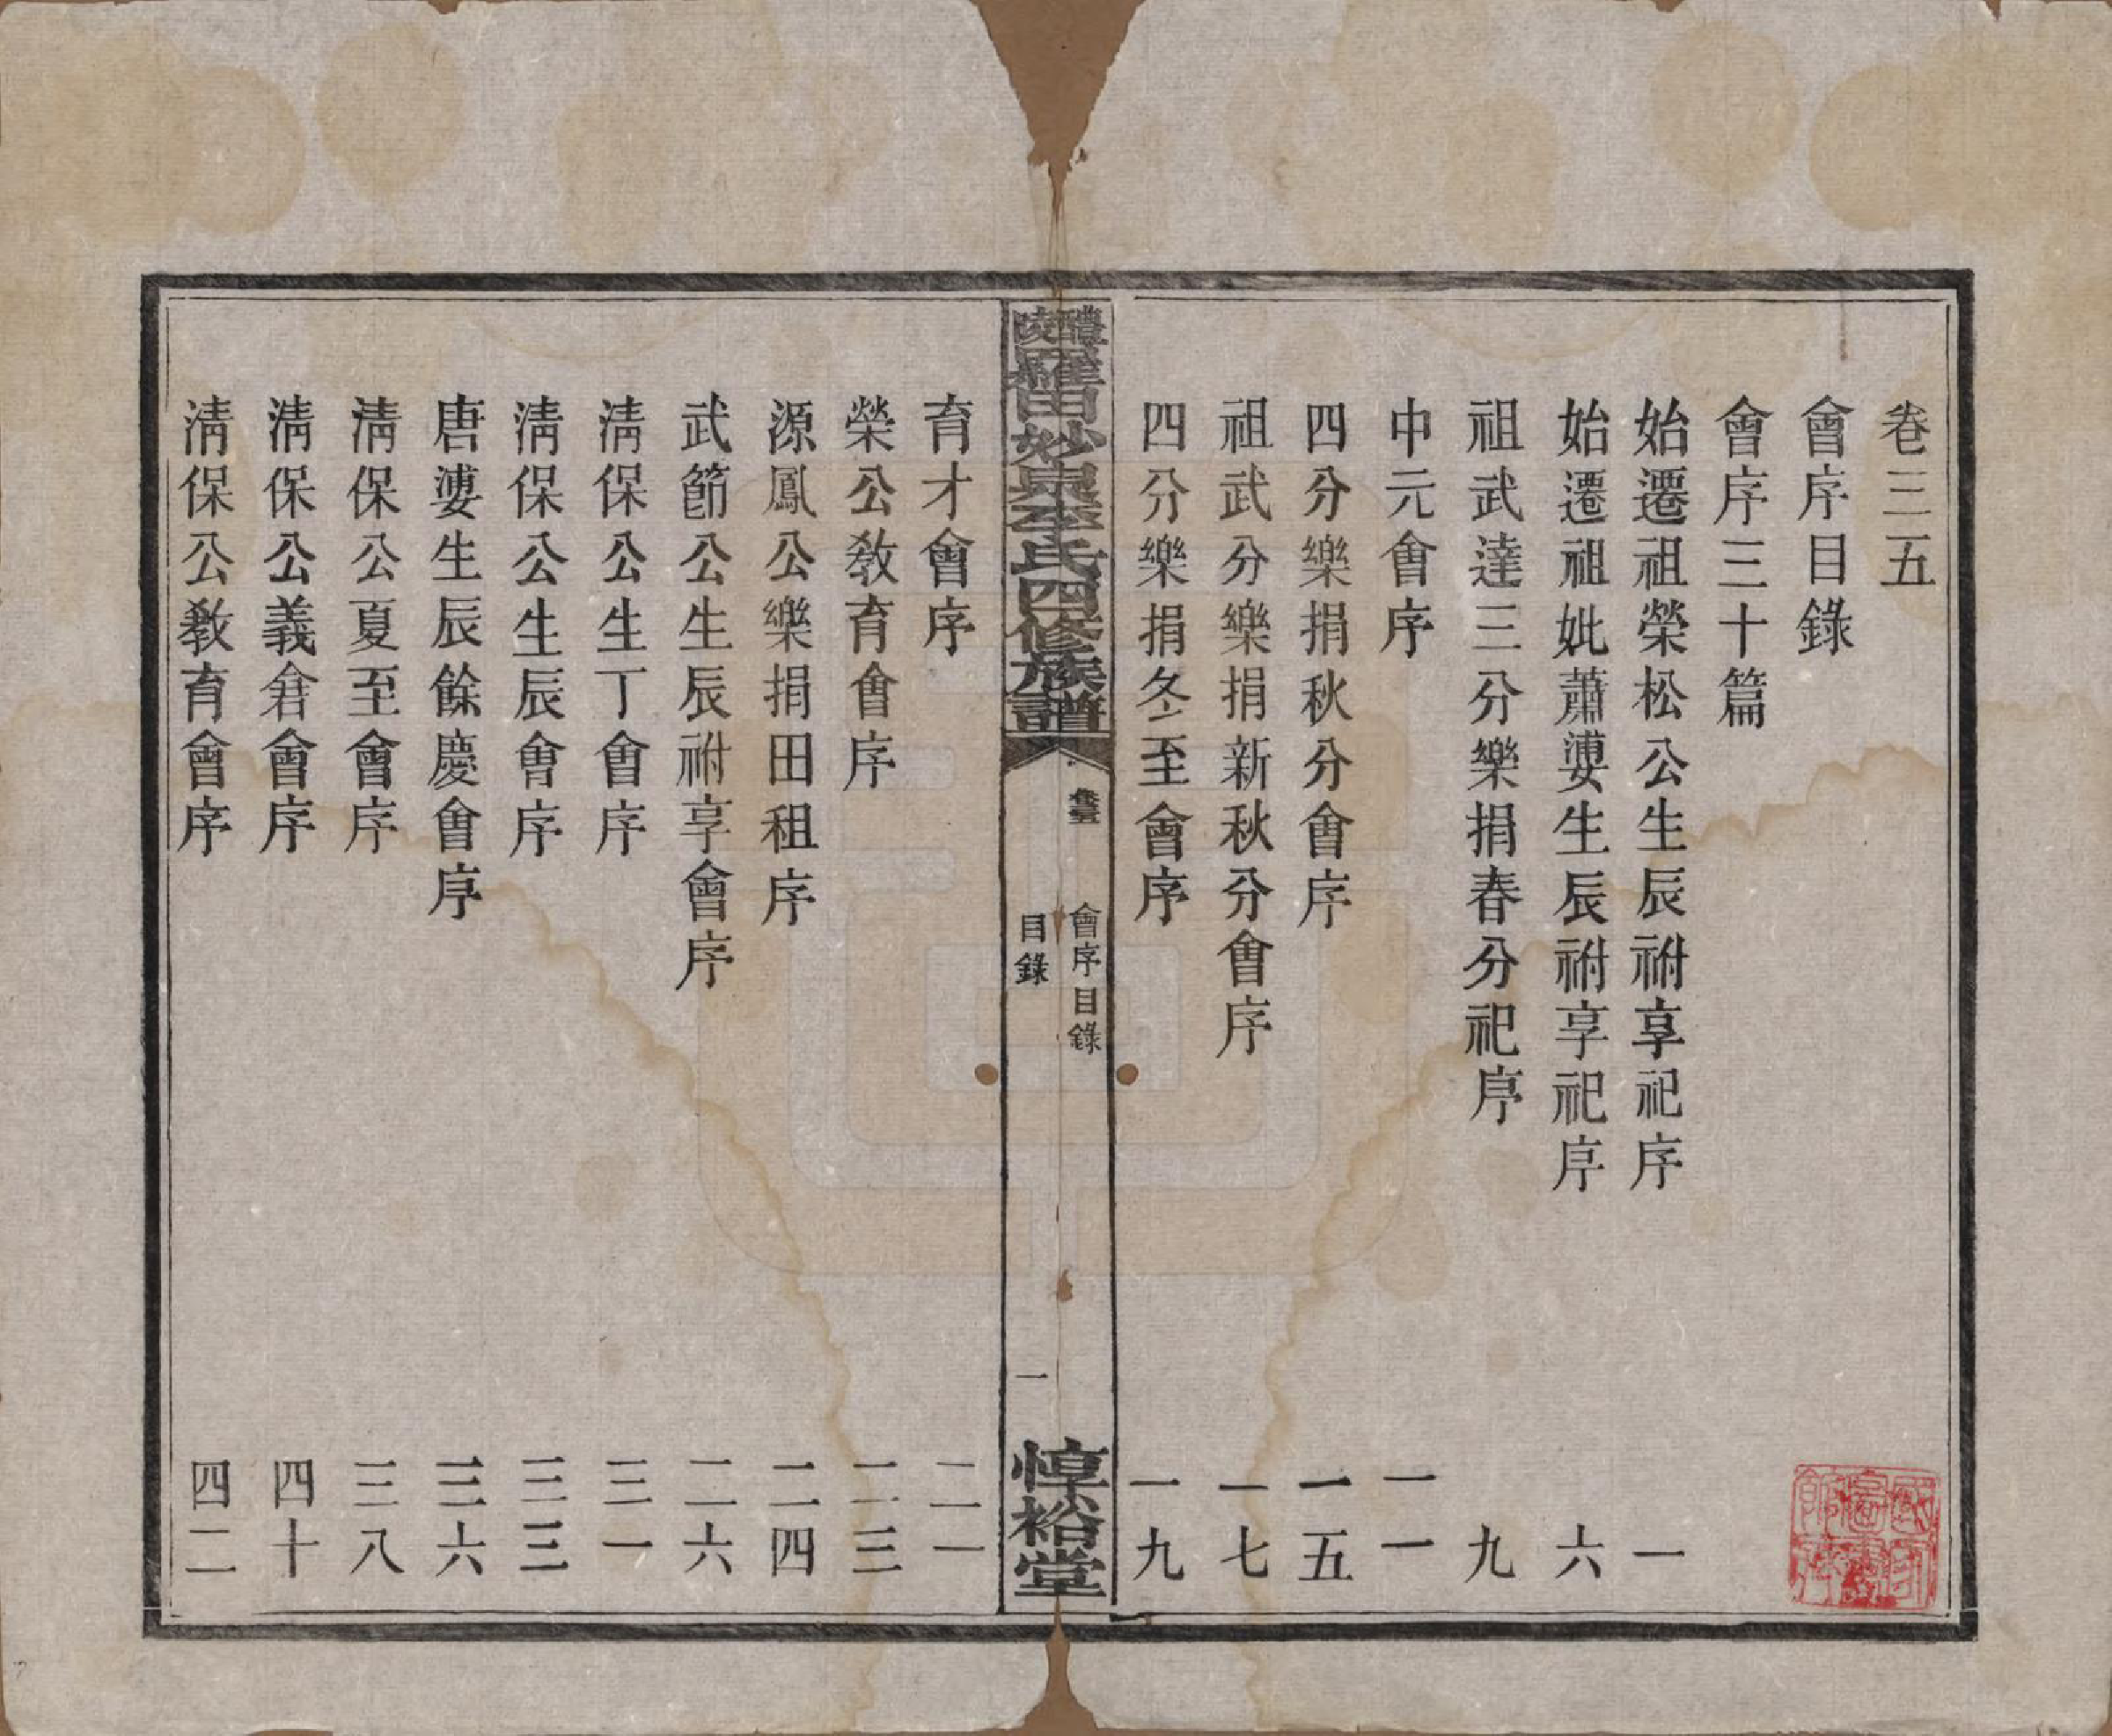 卷三五
會序目錄
會序三十篇
始遷祖榮松公生辰祔享祀序 一
始遷祖妣蕭㜷生辰祔享祀序 六
祖武達三分樂捐春分祀序 九
中元會序 一一
四分樂捐秋分會序 一五
祖武分樂捐新秋分會序 一七
四分樂捐冬至會序 一九
醴陵羅田妙泉李氏四修族譜
卷三五
會序目錄
目錄
一
惇裕堂
育才會序 二一
榮公敎育會序 二三
源鳳公樂捐田租序 二四
武節公生辰祔享會序 二六
淸保公生丁會序 三一
淸保公生辰會序 三三
唐㜷生辰餘慶會序 三六
淸保公夏至會序 三八
淸保公義倉會序 四十
淸保公敎育會序 四二